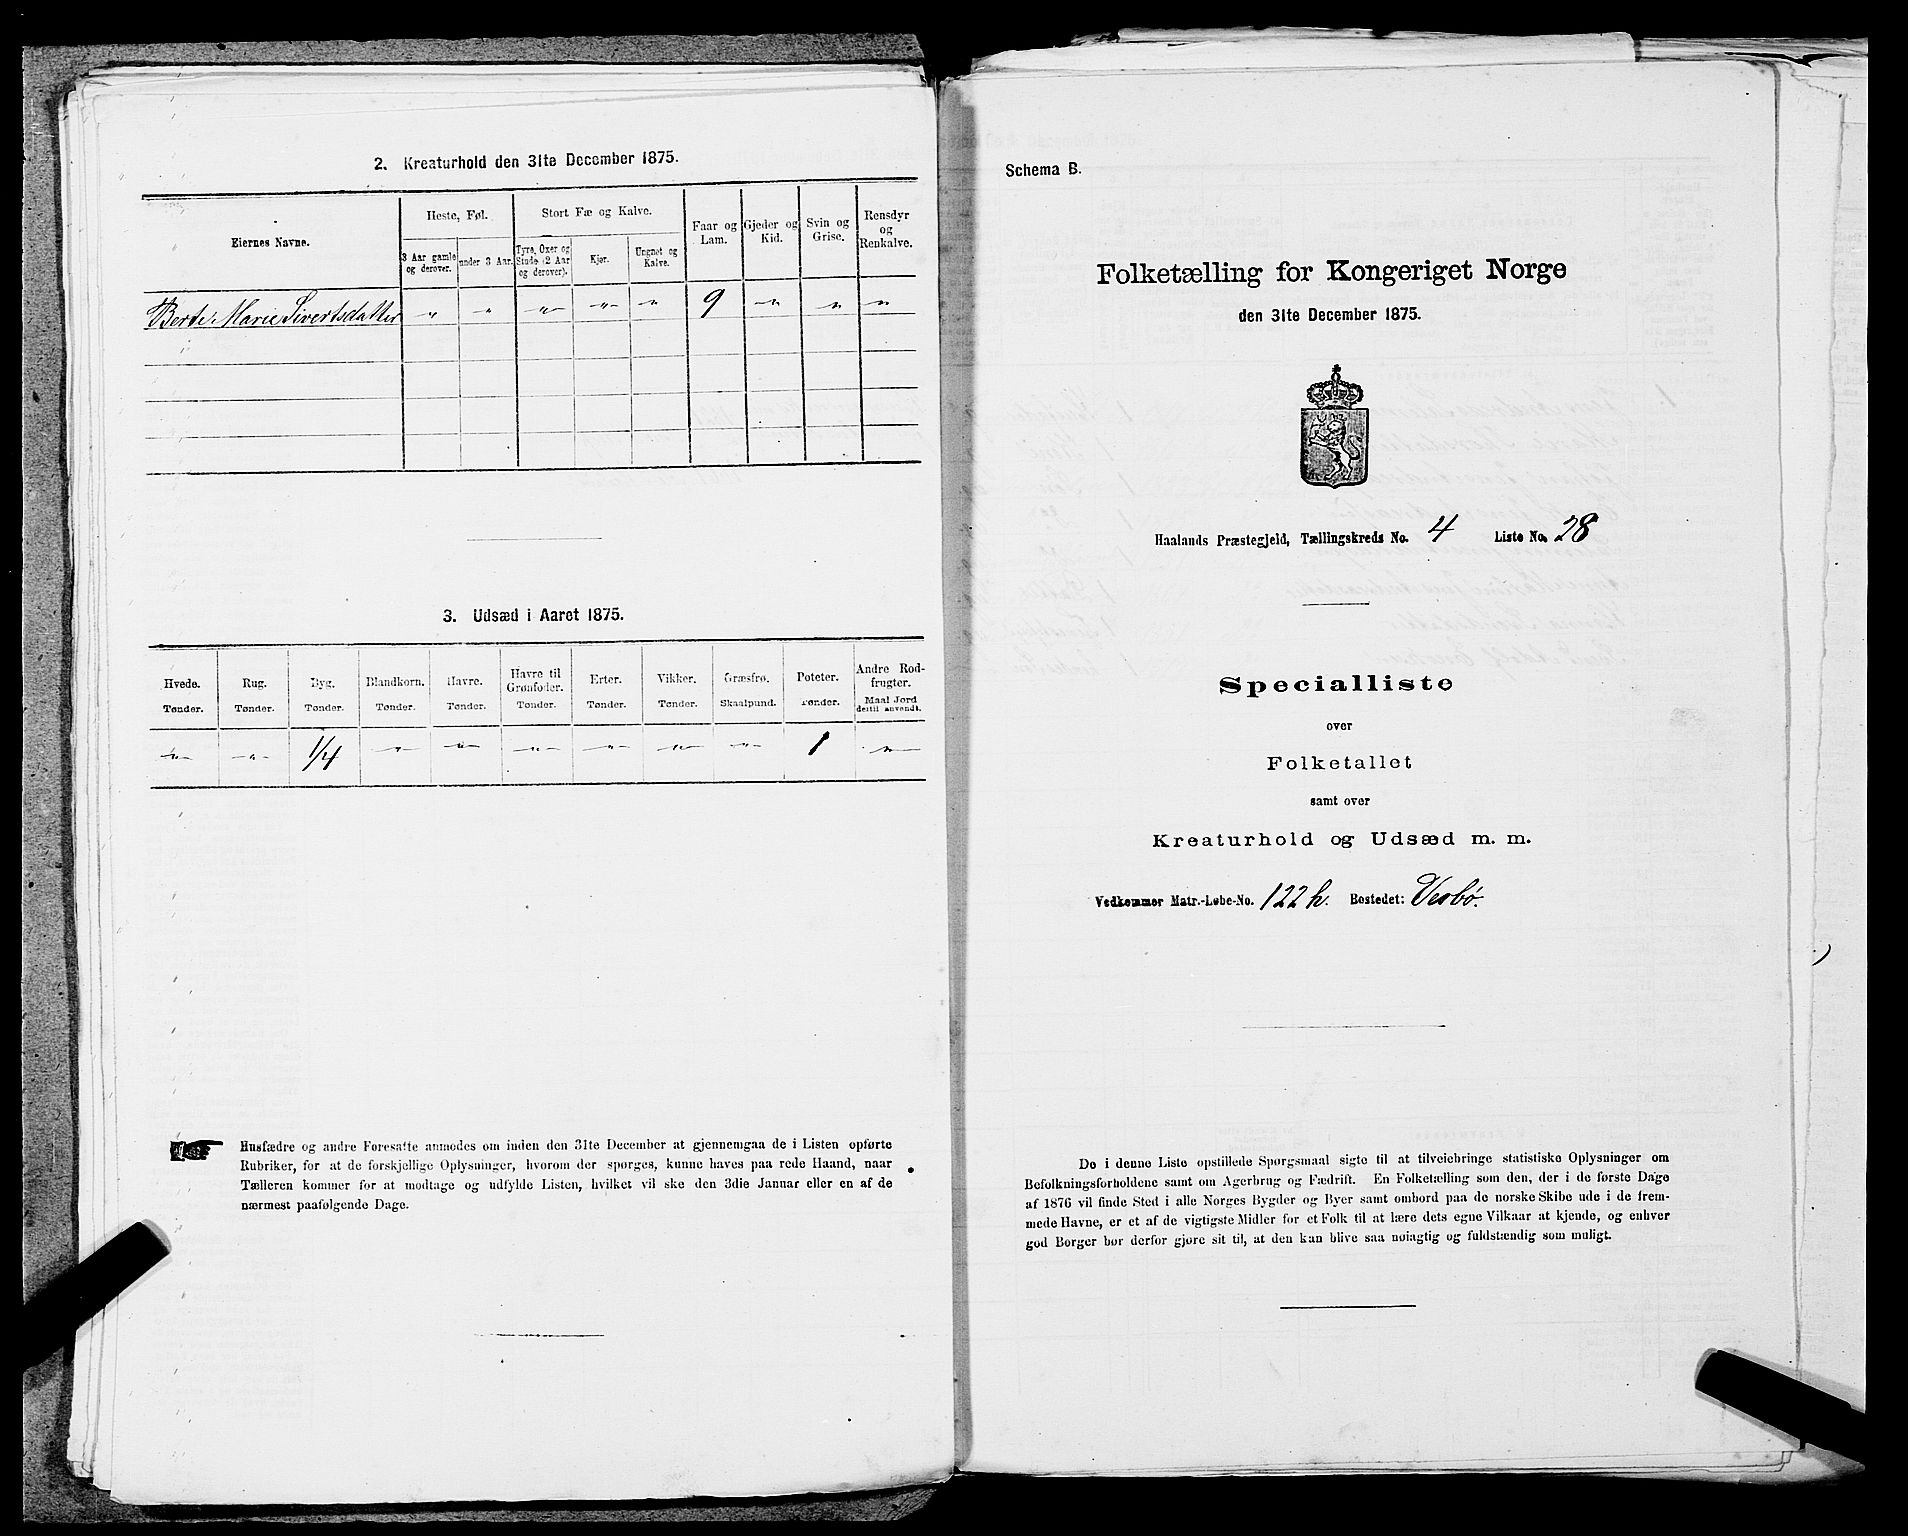 2. Kreaturhold den 31te December 1875.
Eiernes Navne.
Heste, Føl.
Stort Fæ og Kalve.
Faar og Lam.
Gjeder og Kid.
Svin og Grise.
Rensdyr og Renkalve.
3 Aar gamle og derover.
under 3 Aar.
Tyre, Oxer og Stude (2 Aar og derover).
Kjør.
Ungnøt og Kalve.
Berte Marie Sivertsdatter " " " " " 9 " " "
3. Udsæd i Aaret 1875.
Hvede. Rug. Byg. Blandkorn. Havre. Havre til Grønfoder. Erter. Vikker. Græsfrø. Poteter. Andre Rodfrugter.
Tønder. Tønder. Tønder. Tønder. Tønder. Tønder. Tønder. Tønder. Skaalpund. Tønder. Maal Jord dertil anvendt.
" " 1/4 " " " " " " 1 "
Husfædre og andre Foresatte anmodes om inden den 31te December at gjennemgaa de i Listen opførte
Rubriker, for at de forskjellige Oplysninger, hvorom der spørges, kunne haves paa rede Haand, naar
Tælleren kommer for at modtage og udfylde Listen, hvilket vil ske den 3die Januar eller en af de
nærmest paafølgende Dage.
Schema B.
Folketælling for Kongeriget Norge
den 31te December 1875.
Haalands Præstegjeld, Tællingskreds No. 4 Liste No. 28
Specialliste
over
Folketallet
samt over
Kreaturhold og Udsæd m. m.
Vedkommer Matr.-Løbe-No. 122h. Bostedet: Vesbø.
De i denne Liste opstillede Spørgsmaal sigte til at tilveiebringe statistiske Oplysninger om
Befolkningsforholdene samt om Agerbrug og Fædrift. En Folketælling som den, der i de første Dage
af 1876 vil finde Sted i alle Norges Bygder og Byer samt ombord paa de norske Skibe ude i de frem-
mede Havne, er et af de vigtigste Midler for et Folk til at lære dets egne Vilkaar at kjende, og enhver
god Borger bør derfor gjøre sit til, at den kan blive saa nøiagtig og fuldstændig som muligt.